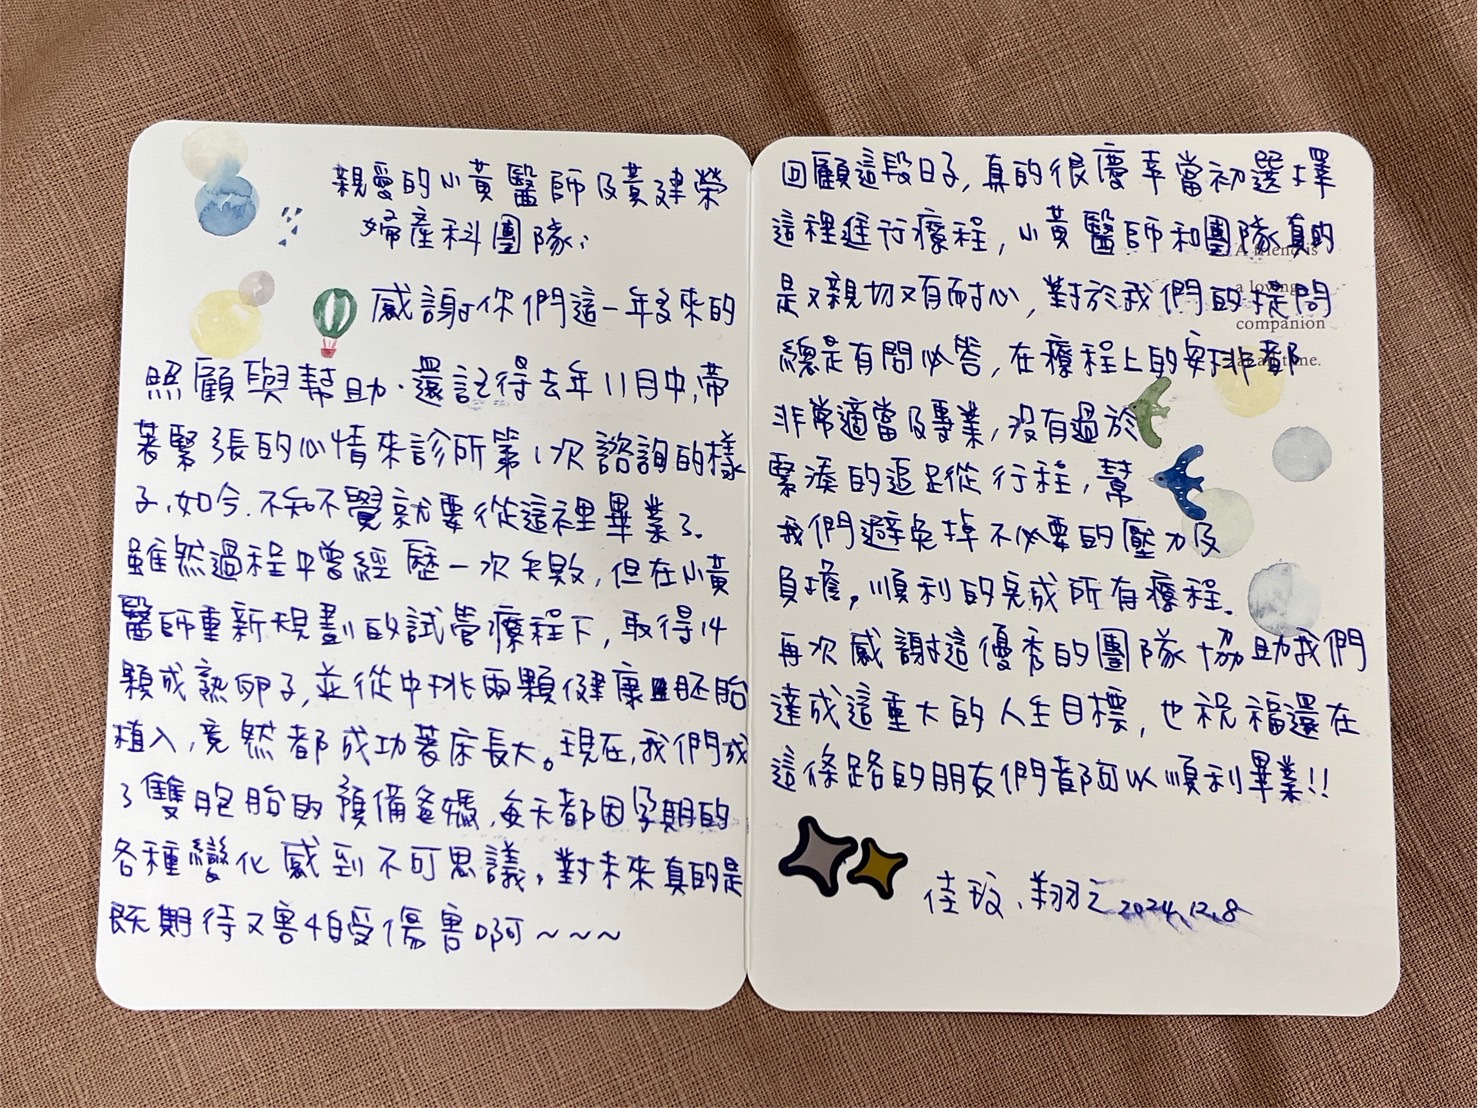 親愛的小黃醫師及黃建榮
婦產科團隊:
感謝你們這一年多來的
照顧與幫助.還記得去年11月中,帶
著緊張的心情來診所第1次諮詢的樣
子,如今.不知不覺就要從這裡畢業了.
雖然過程中曾經歷一次失敗,但在小黃
醫師重新規劃的試管療程下,取得14
顆成熟卵子,並從中挑兩顆健康胚胎
植入,竟然都成功著床長大。現在,我們成
了雙胞胎的預備爸媽,每天都因孕期的
各種變化感到不可思議,對未來真的是
既期待又害怕受傷害啊~~~
回顧這段日子,真的很慶幸當初選擇
這裡進行療程,小黃醫師和團隊真的
是又親切又有耐心,對於我們的提問
總是有問必答,在療程上的安排都
非常適當及專業,沒有過於
緊湊的追足從行程,幫
我們避免掉不必要的壓力及
負擔,順利的完成所有療程.
再次感謝這優秀的團隊協助我們
達成這重大的人生目標,也祝福還在
這條路的朋友們都可以順利畢業!!
佳玟、翔之 2024.12.8
A friend is
a loving
companion
at all time.